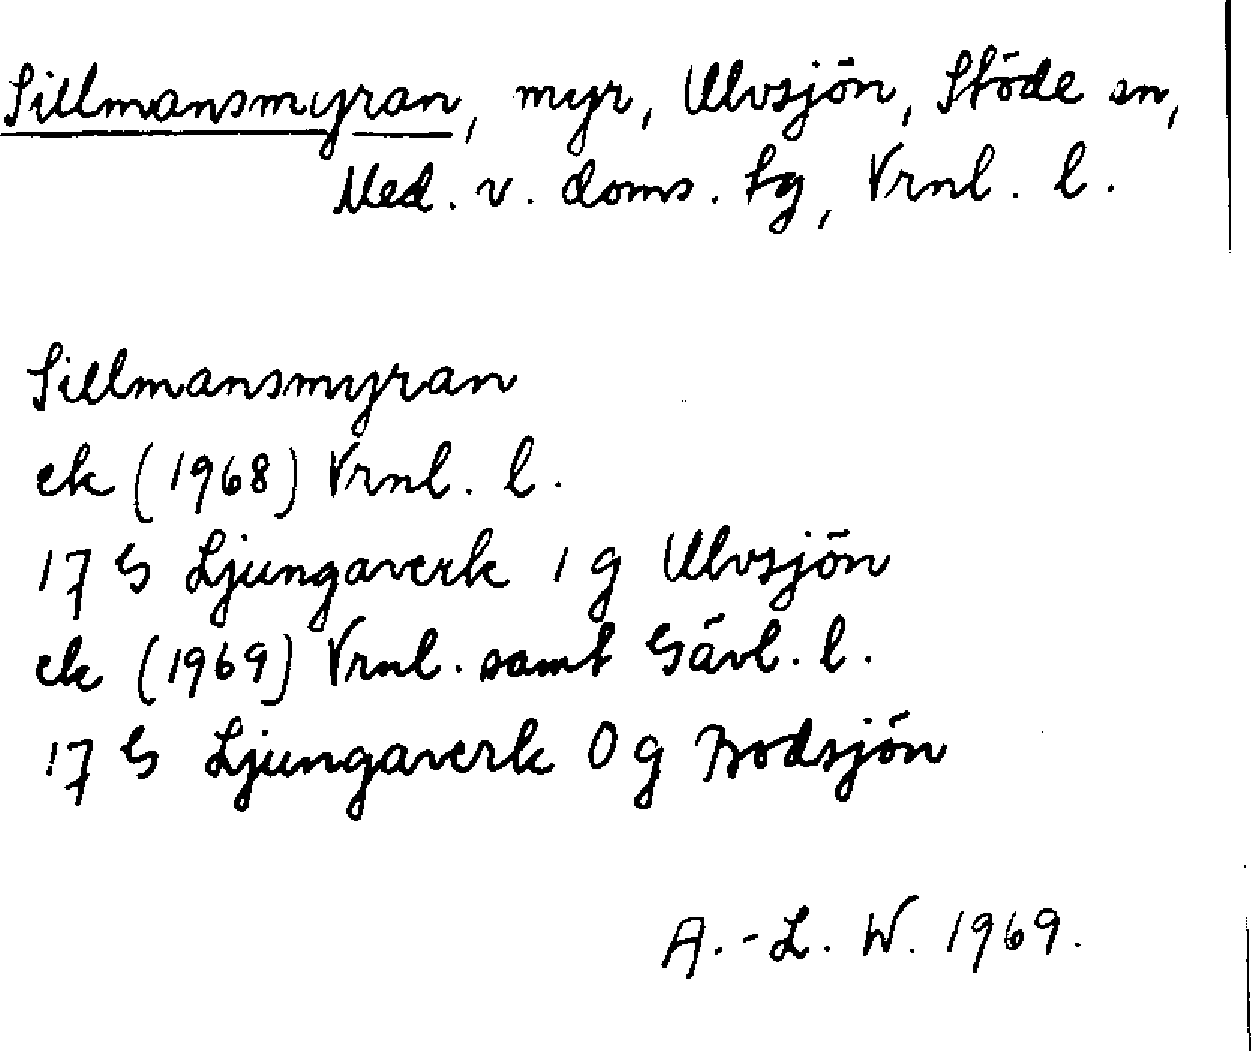 Sillmansmyran, myr, Ulvsjön, Stöde sn,
Med. v. doms. tg, Vrnl. l.
Sillmansmyran
ek (1968) Vrnl. l.
17 G Ljungaverk 1 g Ulvsjön
ek (1969) Vrnl. samt Gävl. l.
17 G Ljungaverk 0 g Bodsjön
A.-L. W. 1969.